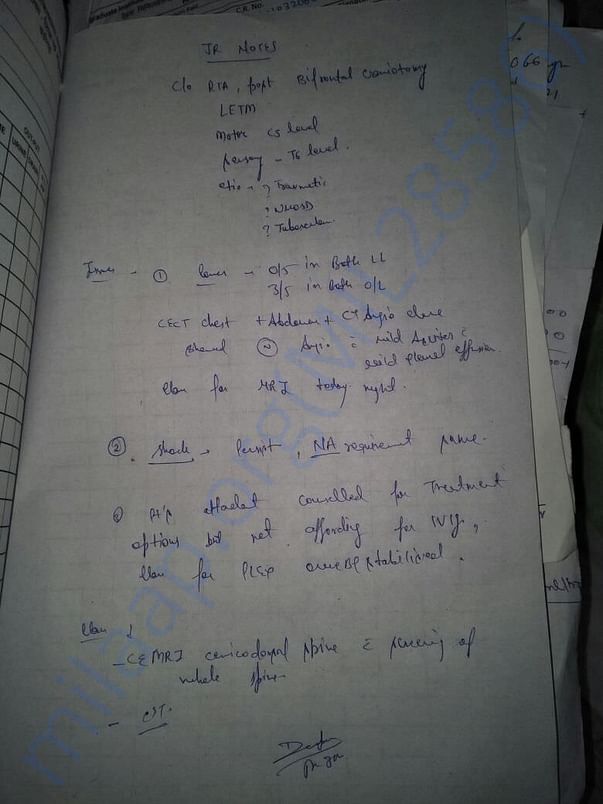 C.R. No.
JR NOTES
C/o RTA, post Bifrontal craniotomy
LETM
Motor C5 level
Sensory - T6 level.
etio - ? Traumatic
? NMOSD
? Tubercular
Issues - ① Power - 0/5 in Both LL
3/5 in both U/L
CECT chest + Abdomen + CT Angio done
Ⓝ Angio c̄ mild Ascites c̄
mild pleural effusion.
Plan for MRI today night.
② Shock → Persist, NA requirement same.
③ Pt's attendant counselled for Treatment
options but not affording for IVIg,
Plan for PLEX once BP stabilised.
Plan
- CEMRI cervicodorsal spine c̄ screening of
whole spine
- CST.
milaap.org(MNL285861)